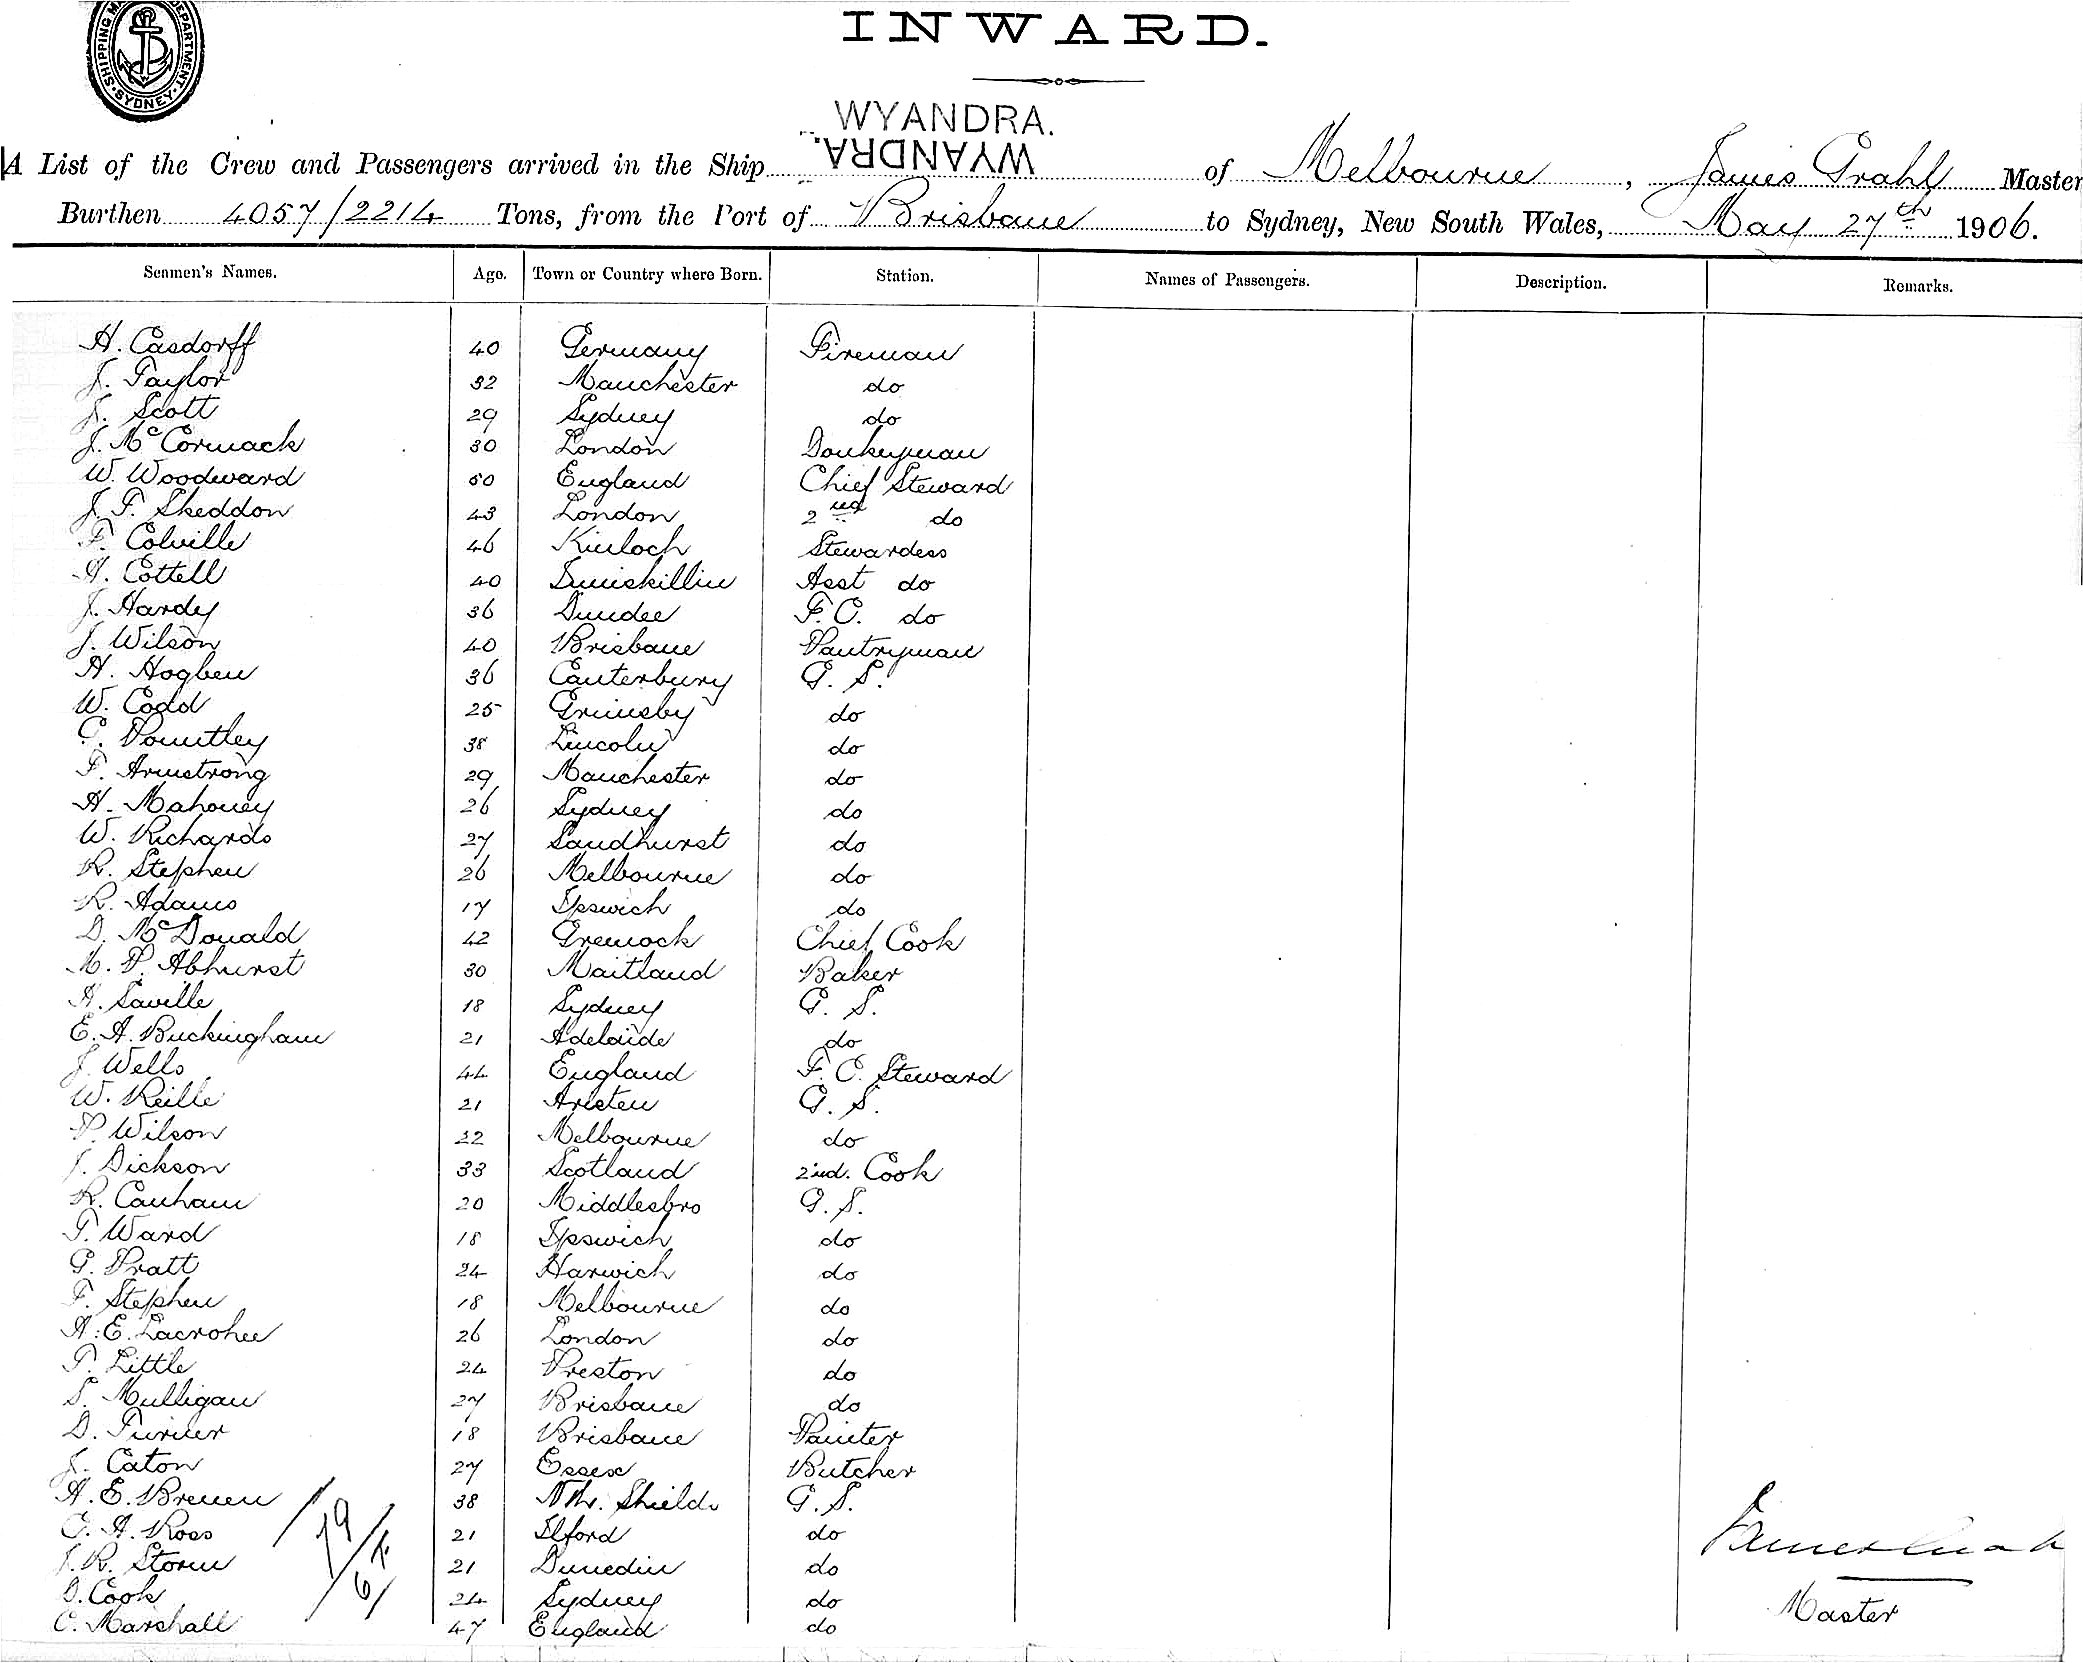 SHIPPING M DEPARTMENT · SYDNEY ·
INWARD.
WYANDRA.
WYANDRA.
A List of the Crew and Passengers arrived in the Ship of Melbourne, James Grahl Master
Burthen 4057/2214 Tons, from the Port of Brisbane to Sydney, New South Wales, May 27th 1906.
Seamen's Names. Age. Town or Country where Born. Station. Names of Passengers. Description. Remarks.
H. Casdorff 40 Germany Fireman
J. Taylor 32 Manchester do
J. Scott 29 Sydney do
J. McCormack 30 London Donkeyman
W. Woodward 50 England Chief Steward
J. F. Skeddon 43 London 2nd do
F. Colville 46 Kinloch Stewardess
A. Cottell 40 Inniskillin Asst do
J. Hardy 36 Dundee F. C. do
J. Wilson 40 Brisbane Pantryman
H. Hogben 36 Canterbury G. S.
W. Codd 25 Grimsby do
C. Pountley 38 Lincoln do
F. Armstrong 29 Manchester do
H. Mahoney 26 Sydney do
W. Richards 27 Sandhurst do
R. Stephen 26 Melbourne do
R. Adams 17 Ipswich do
D. McDonald 42 Greenock Chief Cook
M. P. Abhurst 30 Maitland Baker
H. Saville 18 Sydney G. S.
E. A. Buckingham 21 Adelaide do
J. Wells 44 England F. C. Steward
W. Reille 21 G. S.
P. Wilson 22 Melbourne do
J. Dickson 33 Scotland 2nd. Cook
R. Canham 20 Middlesbro G. S.
T. Ward 18 Ipswich do
G. Pratt 24 Harwich do
F. Stephen 18 Melbourne do
A. E. Lacrohee 26 London do
T. Little 24 Preston do
S. Mulligan 27 Brisbane do
D. Turner 18 Brisbane Painter
J. Caton 27 Essex Butcher
A. E. Breuen 38 Nth. Shields G. S.
C. A. Ross 21 Ilford do
J. R. Storm 21 Dunedin do
D. Cook 24 Sydney do
C. Marshall 47 England do
79
67
Master